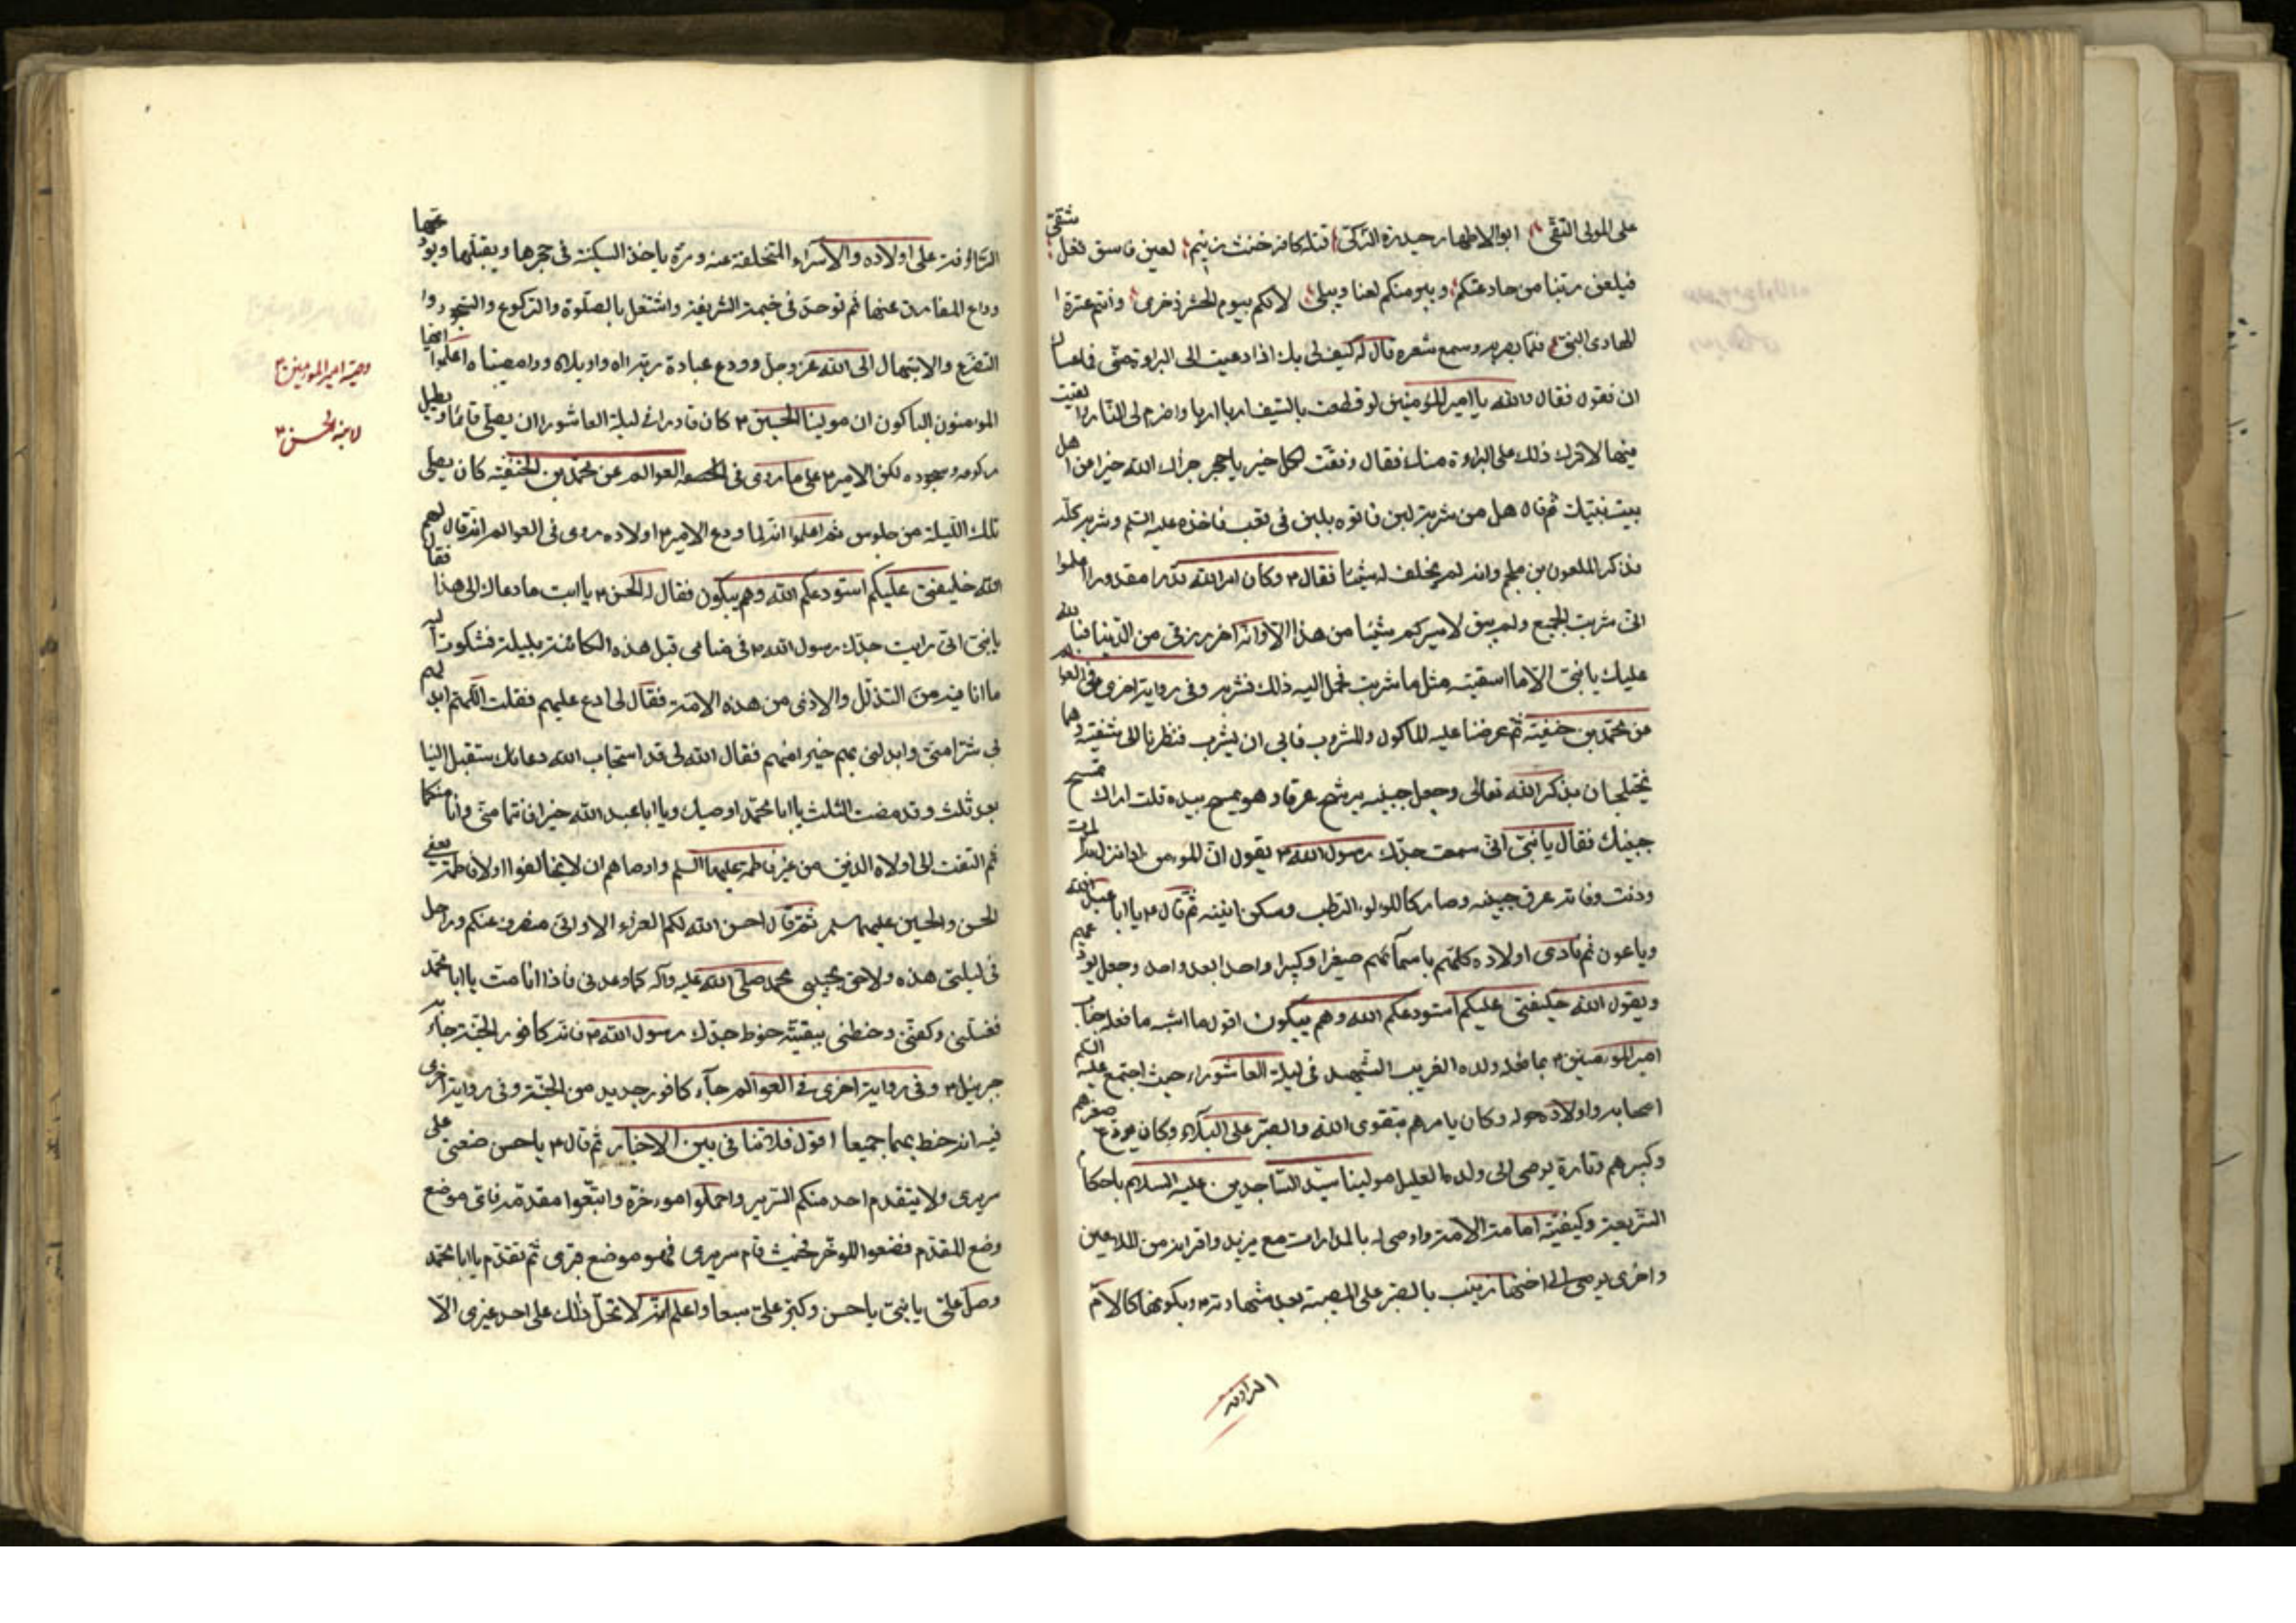 على المولى التقى ابو الاطهار حيدرة الزكى قتله كافر خنث زنيم لعين فاسق نغل شقى
فيلعن ربنا من حاد عنكم ويبرء منكم لعنا وبيلى لانكم بيوم الحشر ذخرى وانتم عترة ا
الهادى النبى فلما بصر به وسمع شعره قال له كيف لى بك اذا دعيت الى البراءة منى فما عسا
ان تقول فقال والله يا امير المؤمنين لو قطعت بالسيف اربا اربا واضرم لى النار والقيت
فيها لاثرت ذلك على البراءة منك فقال وفقت لكل خير يا حجر جزاك الله خيرا من اهل
بيت نبيك ثم قال هل من شربة لبن فاتوه بلبن فى قعب فاخذه عليه السلم وشربه كله
فذكر الملعون بن ملجم وانه لم يخلف له شيئا فقال ع وكان امر الله قدرا مقدورا اعلموا
انى شربت الجميع ولم يبق لاسيركم شيئا من هذا الا وانه اخر رزقى من الدنيا فبالله
عليك يا بنى الا ما اسقيته مثل ما شربت فحمل اليه ذلك فشربه وفى رواية اخرى فى العوالم
عن محمد بن حنفية ثم عرضنا عليه الماكول والمشروب فابى ان يشرب فنظرنا الى شفتيه وهما
يختلجان بذكر الله تعالى وجعل جبينه يرشح عرقا وهو يمسح بيده قلت اراك تمسح
جبينك فقال يا بنى انى سمعت جدك رسول الله ص يقول ان المؤمن اذا نزل به الموت
ودنت وفاته عرق جبينه وصار كاللؤلؤ الرطب وسكن انينه ثم قال ع يا ابا عبد الله
ويا عون ثم نادى اولاده كلهم باسمائهم صغيرا وكبيرا واحدا بعد واحد وجعل يودعهم
ويقول الله خليفتى عليكم استودعكم الله وهم يبكون اقول ما اشبه ما فعله جناب
امير المؤمنين ع بما فعله ولده الغريب الشهيد فى ليلة العاشوراء حيث اجتمع عليه
اصحابه واولاده حوله وكان يامرهم بتقوى الله والصبر على البلاء وكان يودع صغيرهم
وكبيرهم وتارة يوصى الى ولده العليل مولينا سيد الساجدين عليه السلام باحكام
الشريعة وكيفية امامة الامة واوصى له بالمدارات مع يزيد واقرانه من الملاعين
واخرى يوصى الى اختها زينب بالصبر على المصيبة بعد شهادته وبكونها كالام
الرؤفة
الرؤفة على اولاده والاسراء المتخلفة عنه ومرة ياخذ السكينة فى حجرها ويقبلها ويودعها
وداع المفارق عنها ثم توحد فى خيمته الشريفة واشتغل بالصلوة والركوع والسجود وا
التضرع والابتهال الى الله عز وجل وودع عبادة ربه اه واويلاه ووامصيبتاه اعلموا ايها
المؤمنون الباكون ان مولينا الحسين ع كان قادرا فى ليلة العاشورا ان يصلى قائما ويطيل
ركوعه وسجوده لكن الامير ع على ما روى فى العوالم عن محمد بن الحنفية كان يصلى
تلك الليلة من جلوس ثم اعلموا انه لما ودع الامير ع اولاده روى فى العوالم انه قال لهم
الله خليفتى عليكم استودعكم الله وهم يبكون فقال له الحسن ع يا ابت ما دعاك الى هذا فقال
يا بنى انى رايت جدك رسول الله ص فى منامى قبل هذه الكائنة بليلة فشكوت اليه
ما انا فيه من التذلل والاذى من هذه الامة فقال لى ادع عليهم فقلت اللهم ابدلهم
بى شرا منى وابدلنى بهم خيرا منهم فقال الله لى قد استجاب الله دعائك ستقبل الينا
بعد ثلث وقد مضت الثلث يا ابا محمد اوصيك ويا ابا عبد الله خيرا فانتما منى وانا منكما
ثم التفت الى اولاده الذين من غير فاطمة عليها السلم واوصاهم ان لا يخالفوا اولاد فاطمة يعنى
الحسن والحسين عليهما سلم ثم قال احسن الله لكم العزاء الا وانى منصرف عنكم وراحل
فى ليلتى هذه ولاحق بحبيبى محمد صلى الله عليه وآله كما وعدنى فاذا انا مت يا ابا محمد
فغسلنى وكفنى وحنطنى ببقية حنوط جدك رسول الله ص فانه كافور الجنة جاء به
جبرئيل ع وفى رواية اخرى فى العوالم جآء كافور جديد من الجنة وفى رواية اخرى
فيه انه حنط بهما جميعا اقول فلا تنافى بين الاخبار ثم قال ع يا حسن ضعنى على
سريرى ولا يتقدم احد منكم السرير واحملوا موءخره واتبعوا مقدمه فاى موضع
وضع المقدم فضعوا المؤخر فحيث قام سريرى فهو موضع قبرى ثم تقدم يا ابا محمد
وصل على يا بنى يا حسن وكبر على سبعا واعلم انه لا تحل ذلك على احد غيرى الا
وصية امير المؤمنين ع
لابنه الحسن ع